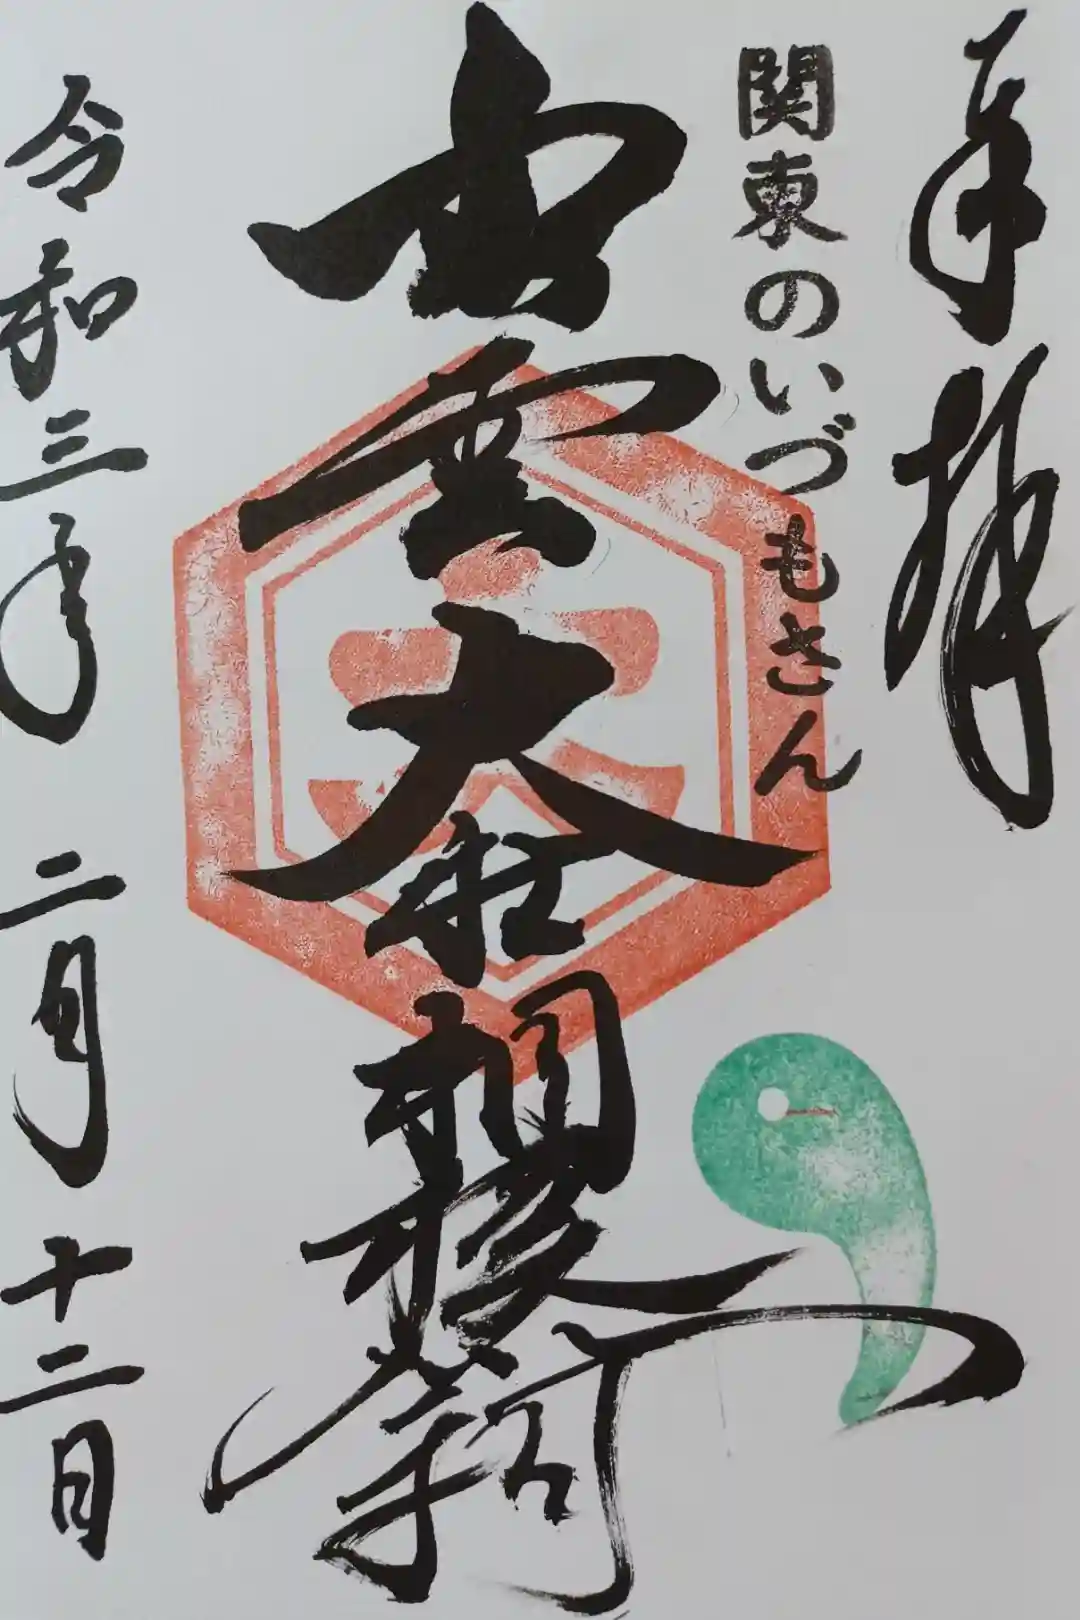 奉拝
関東のいづもさん
出雲大社相模分祠
令和三年二月十二日